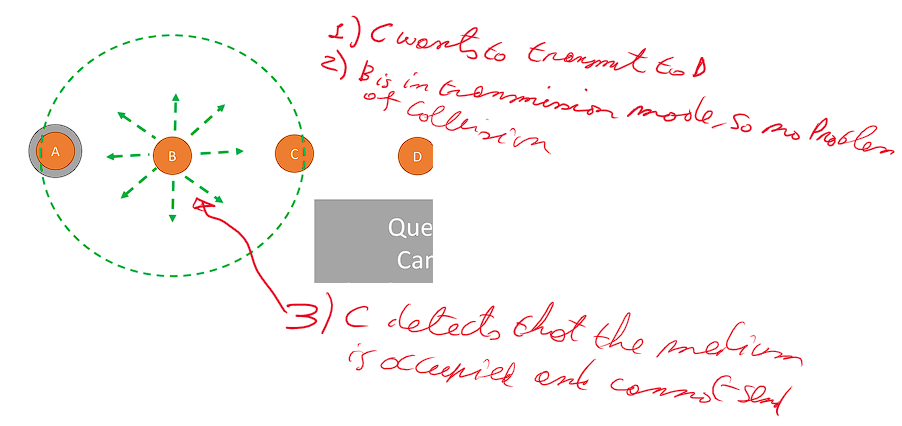 1) C wants to transmit to D
2) B is in transmission mode, so no Problem
of Collision
A
B
C
D
Que
Can
3) C detects that the medium
is occupied and cannot send